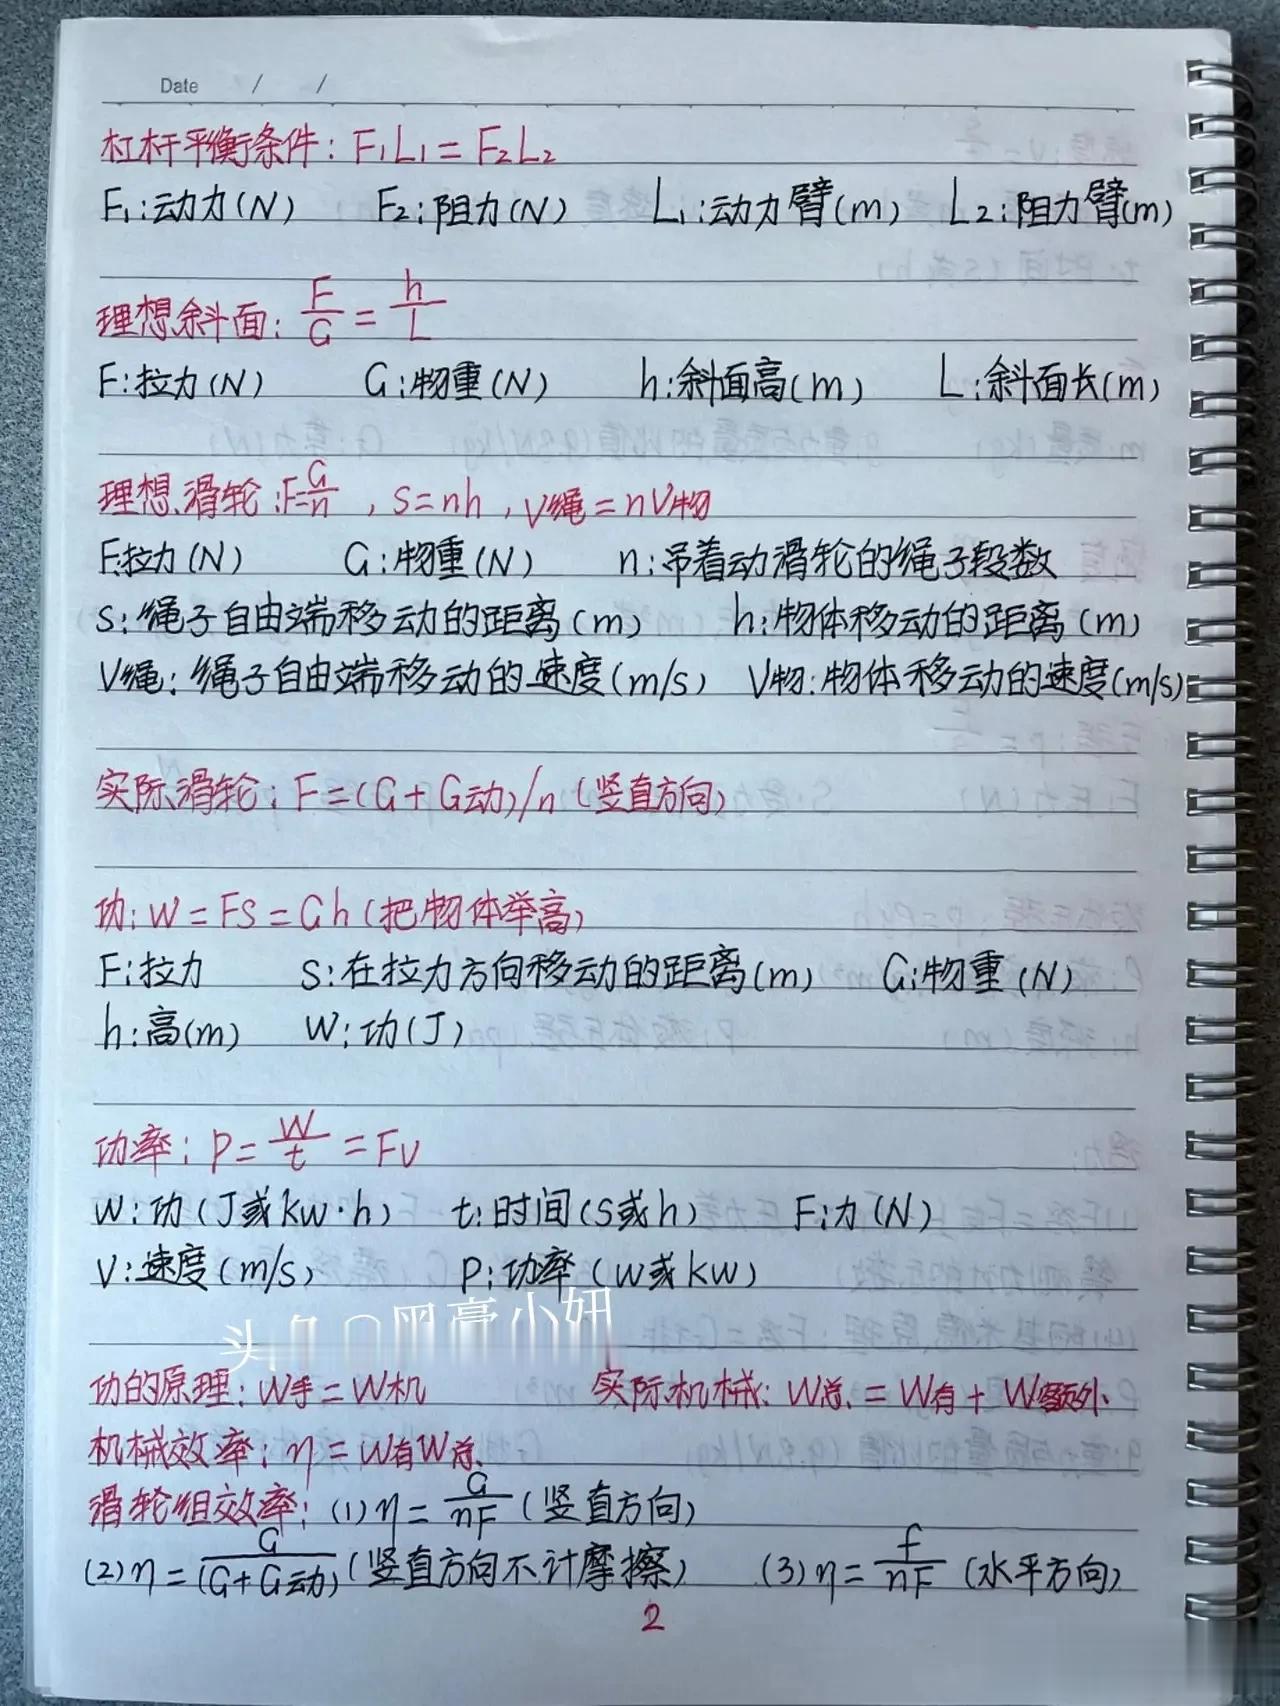 Date / /
杠杆平衡条件：F₁L₁=F₂L₂
F₁：动力(N) F₂：阻力(N) L₁：动力臂(m) L₂：阻力臂(m)
理想斜面：F/G=h/L
F：拉力(N) G：物重(N) h：斜面高(m) L：斜面长(m)
理想滑轮：F=G/n，s=nh，V绳=nV物
F：拉力(N) G：物重(N) n：吊着动滑轮的绳子段数
s：绳子自由端移动的距离(m) h：物体移动的距离(m)
V绳：绳子自由端移动的速度(m/s) V物：物体移动的速度(m/s)
实际滑轮：F=(G+G动)/n(竖直方向)
功：W=FS=Gh(把物体举高)
F：拉力 S：在拉力方向移动的距离(m) G：物重(N)
h：高(m) W：功(J)
功率：P=W/t=Fv
W：功(J或kw·h) t：时间(s或h) F：力(N)
V：速度(m/s) P：功率(w或kw)
功的原理：W手=W机 实际机械：W总=W有+W额外
机械效率：η=W有W总
滑轮组效率：(1)η=G/nF(竖直方向)
(2)η=G/(G+G动)(竖直方向不计摩擦) (3)η=f/nF(水平方向)
2